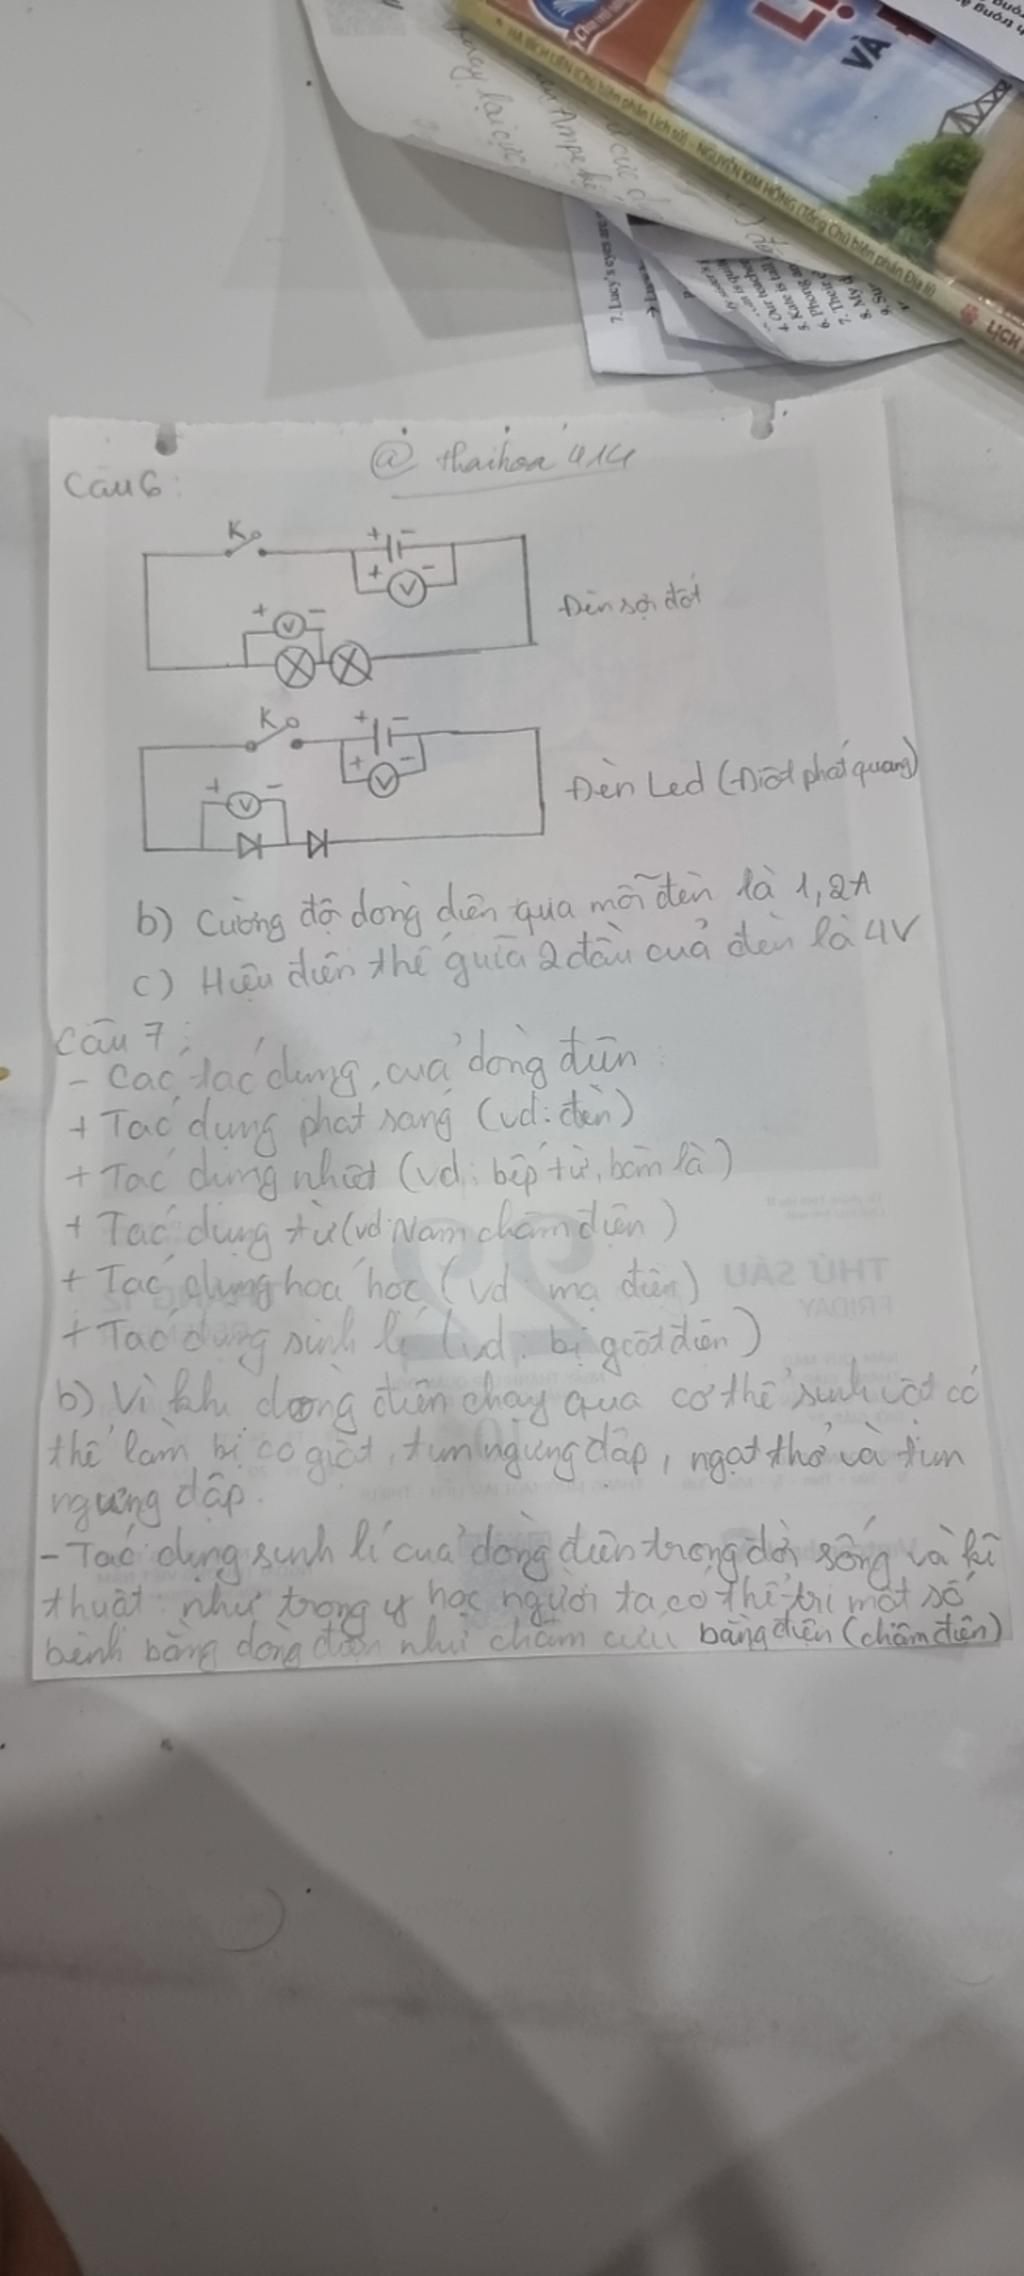 VÀ
HÀ BÍCH LIÊN (Chủ biên phần Lịch sử) - NGUYỄN KIM HỒNG (Tổng Chủ biên phần Địa lí)
7. Lucy's eyes are
@ thaihoa 414
Câu 6:
K + -
+ - V
Đèn sợi đốt
+ V -
K + -
+ - V
Đèn Led (Điốt phát quang)
+ V -
b) Cường độ dòng điện qua mỗi đèn là 1,2A
c) Hiệu điện thế giữa 2 đầu của đèn là 4V
Câu 7:
- Các tác dụng của dòng điện:
+ Tác dụng phát sáng (vd: đèn)
+ Tác dụng nhiệt (vd: bếp từ, bàn là)
+ Tác dụng từ (vd: Nam châm điện)
+ Tác dụng hoá học (vd: mạ điện)
+ Tác dụng sinh lí (vd: bị giật điện)
b) Vì khi dòng điện chạy qua cơ thể sinh vật có
thể làm bị co giật, tim ngừng đập, ngạt thở và tim
ngừng đập.
- Tác dụng sinh lí của dòng điện trong đời sống và kĩ
thuật: như trong y học người ta có thể trị một số
bệnh bằng dòng điện như châm cứu bằng điện (châm điện)
THỨ SÁU
FRIDAY
22